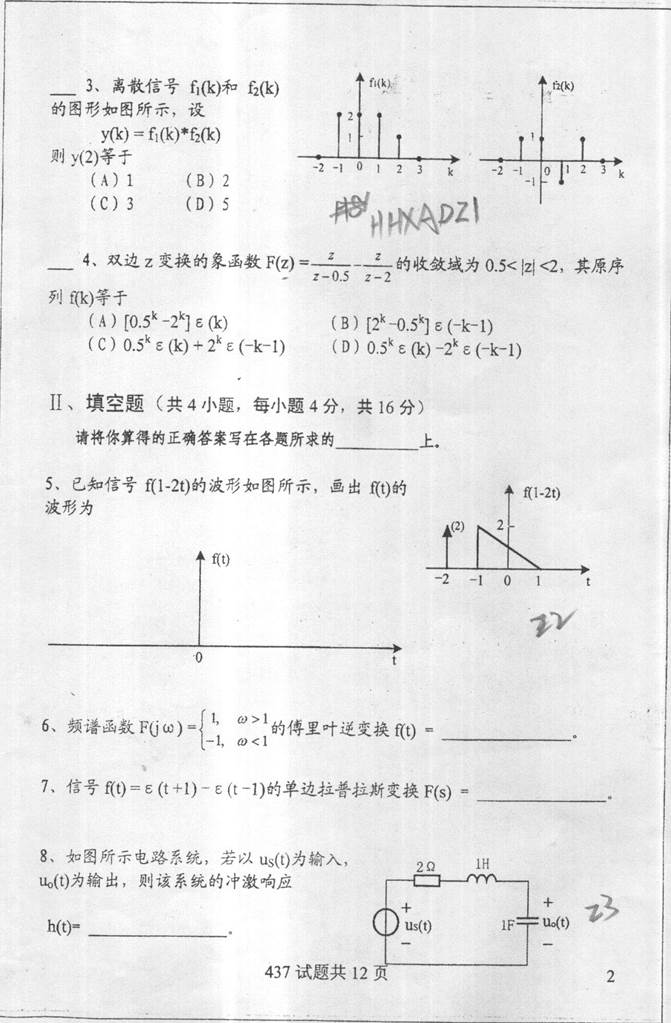 __ 3、离散信号 f₁(k)和 f₂(k)
的图形如图所示，设
y(k) = f₁(k)*f₂(k)
则 y(2)等于
(A) 1 (B) 2
(C) 3 (D) 5
f₁(k)
2
1
-2 -1 0 1 2 3 k
f₂(k)
1
-2 -1 0 1 2 3 k
-1
HHXADZ1
__ 4、双边 z 变换的象函数 F(z) = z/(z-0.5) - z/(z-2) 的收敛域为 0.5< |z| <2，其原序
列 f(k)等于
(A) [0.5ᵏ -2ᵏ] ε (k) (B) [2ᵏ -0.5ᵏ] ε (-k-1)
(C) 0.5ᵏ ε (k) + 2ᵏ ε (-k-1) (D) 0.5ᵏ ε (k) -2ᵏ ε (-k-1)
Ⅱ、填空题（共 4 小题，每小题 4 分，共 16 分）
请将你算得的正确答案写在各题所求的________上。
5、已知信号 f(1-2t)的波形如图所示，画出 f(t)的
波形为
f(1-2t)
(2) 2
-2 -1 0 1 t
f(t)
0 t
Z2
6、频谱函数 F(jω) = { 1, ω>1
-1, ω<1 的傅里叶逆变换 f(t) = ____________。
7、信号 f(t) = ε (t +1) - ε (t -1)的单边拉普拉斯变换 F(s) = ____________。
8、如图所示电路系统，若以 uS(t)为输入，
uo(t)为输出，则该系统的冲激响应
h(t)= ____________。
2Ω 1H
+ uS(t) -
1F + uo(t) -
Z3
437 试题共 12 页
2